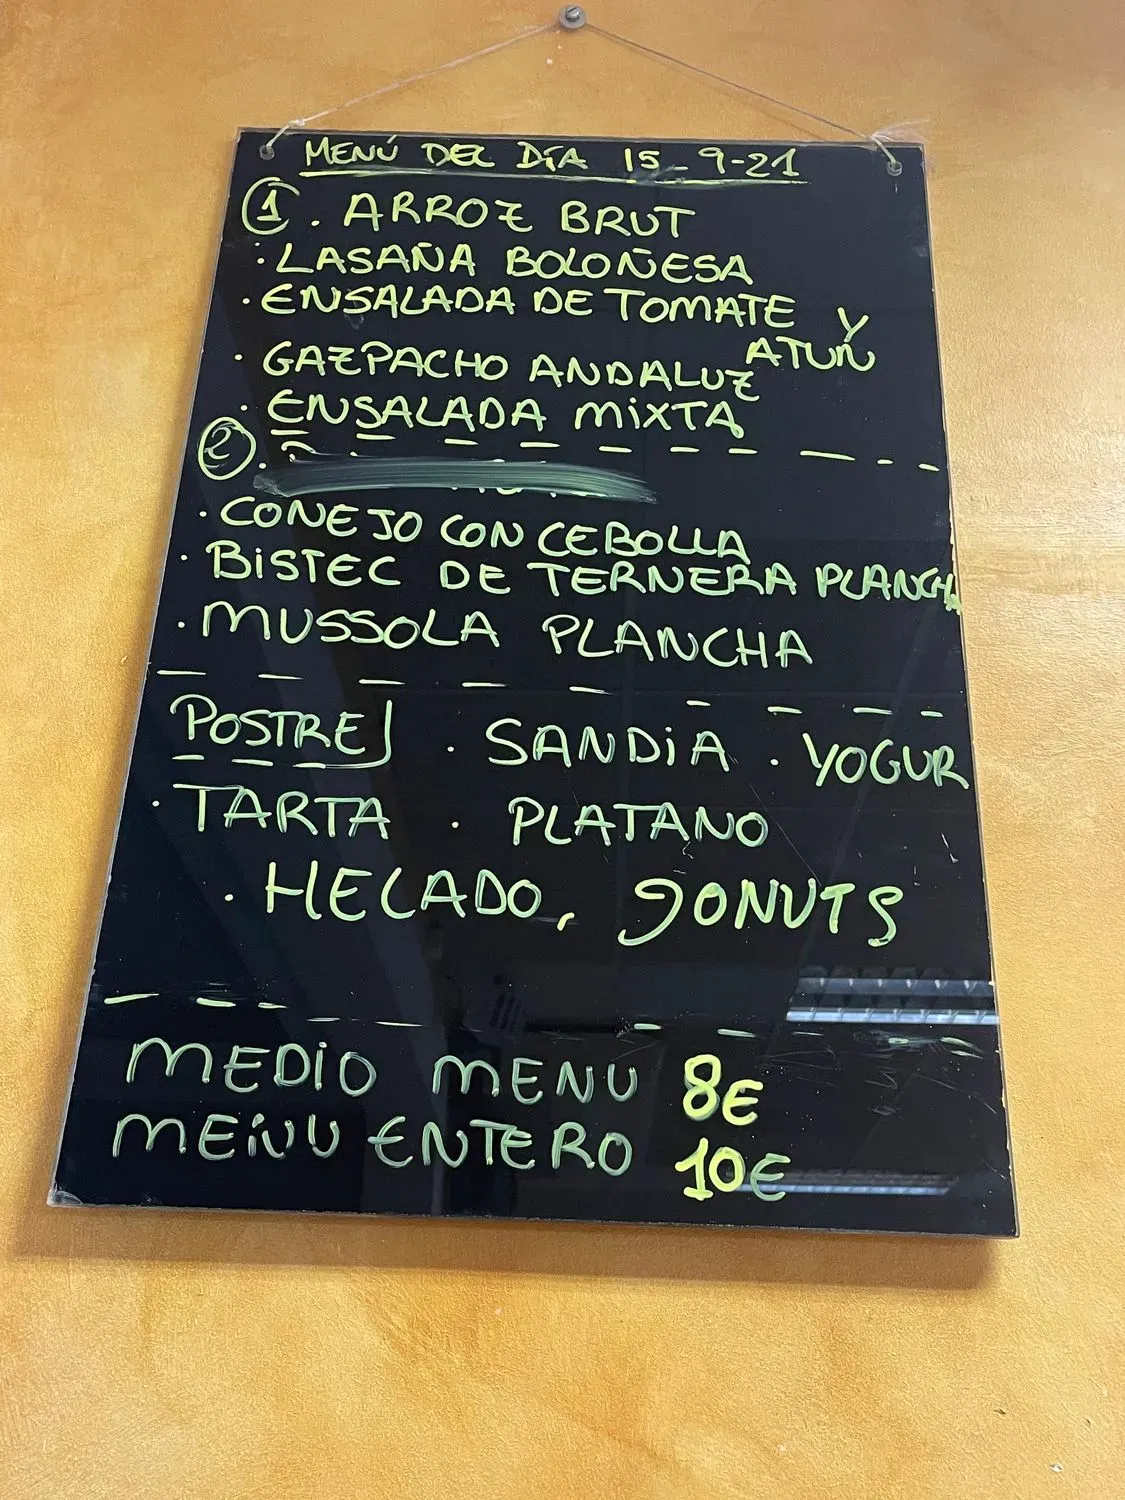 MENÚ DEL DÍA 15-9-21
1 . ARROZ BRUT
· LASAÑA BOLOÑESA
· ENSALADA DE TOMATE Y
ATUN
· GAZPACHO ANDALUZ
· ENSALADA MIXTA
2 .
· CONEJO CON CEBOLLA
· BISTEC DE TERNERA PLANCHA
· MUSSOLA PLANCHA
POSTRE · SANDIA · YOGUR
· TARTA · PLATANO
· HELADO, DONUTS
MEDIO MENU 8€
MENU ENTERO 10€